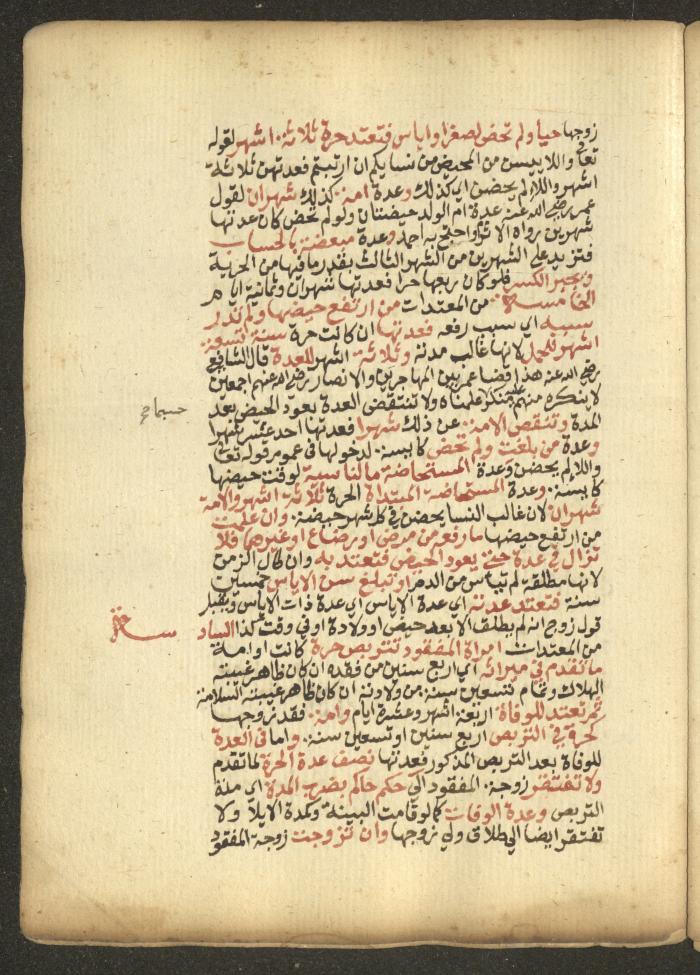 زوجها حيا ولم تحض لصغر او اياس فتعتد حرة ثلاثة اشهر لقوله
تعالى واللايئسن من المحيض من نسايكم ان ارتبتم فعدتهن ثلاثة
اشهر واللائي لم يحضن اي كذلك وعدة امة كذلك شهران لقول
عمر رضي الله عنه عدة ام الولد حيضتان ولو لم تحض كان عدتها
شهرين رواه الاثرم واحتج به احمد وعدة مبعضة بالحساب
فتزيد على الشهرين من الشهر الثالث بقدر ما فيها من الحرية
ويجبر الكسر فلو كان ربعها حرا فعدتها شهران وثمانية ايام
الخامسة من المعتدات من ارتفع حيضها ولم تدر
سببه اي سبب رفعه فعدتها ان كانت حرة سنة تسعة
اشهر للحمل لانها غالب مدته وثلاثة اشهر للعدة قال الشافعي
رضي الله عنه هذا قضا عمر بين المهاجرين والانصار رضي الله عنهم اجمعين
لا ينكره منهم منكر علمناه ولا تنتقض العدة بعود الحيض بعد
المدة وتنقص الامة عن ذلك شهرا فعدتها احد عشر شهرا
وعدة من بلغت ولم تحض كايسة لدخولها في عموم قوله تعالى
واللائي لم يحضن وعدة المستحاضة الناسية لوقت حيضها
كايسة وعدة المستحاضة المبتداة الحرة ثلاثة اشهر والامة
شهران لان غالب النسا يحضن في كل شهر حيضة وان علمت
من ارتفع حيضها ما رفعه من مرض او رضاع او غيرهما فلا
تزال في عدة حتى يعود الحيض فتعتد به وان طال الزمن
لانها مطلقة لم تياس من الدم او تبلغ سن الاياس خمسين
سنة فتعتد عدته اي عدة الاياس اي عدة ذات الاياس ويقبل
قول زوج انه لم يطلق الا بعد حيض او ولادة او في وقت كذا السادسة
من المعتدات امراة المفقود تتربص حرة كانت او امة
ما تقدم في ميراثه اي اربع سنين من فقده ان كان ظاهر غيبته
الهلاك وتمام تسعين سنة من ولادته ان كان ظاهر غيبته السلامة
ثم تعتد للوفاة اربعة اشهر وعشرة ايام وامة فقد زوجها
كحرة في التربص اربع سنين او تسعين سنة واما في العدة
للوفاة بعد التربص المذكور فعدتها نصف عدة الحرة لما تقدم
ولا تفتقر زوجة المفقود الى حكم حاكم بضرب المدة اي مدة
التربص وعدة الوفات كما لو قامت البينة وكمدة الايلا ولا
تفتقر ايضا الى طلاق ولي زوجها وان تزوجت زوجة المفقود